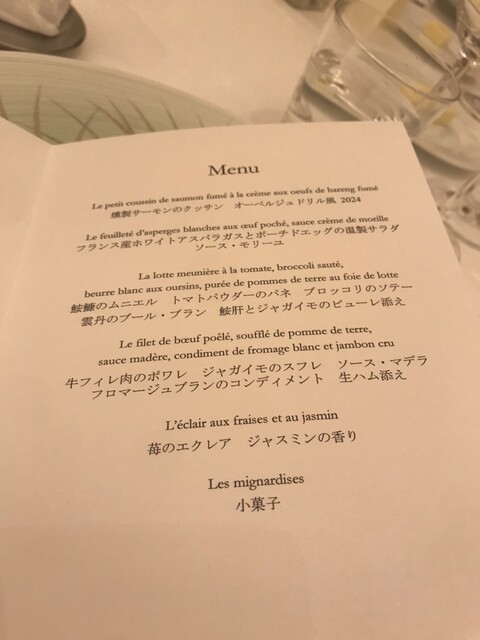 Menu
Le petit coussin de saumon fumé à la crème aux oeufs de hareng fumé
燻製サーモンのクッサン　オーベルジュドリル風 2024
Le feuilleté d'asperges blanches aux œuf poché, sauce crème de morille
フランス産ホワイトアスパラガスとポーチドエッグの温製サラダ
ソース・モリーユ
La lotte meunière à la tomate, broccoli sauté,
beurre blanc aux oursins, purée de pommes de terre au foie de lotte
鮟鱇のムニエル　トマトパウダーのパネ　ブロッコリのソテー
雲丹のブール・ブラン　鮟肝とジャガイモのピューレ添え
Le filet de bœuf poêlé, soufflé de pomme de terre,
sauce madère, condiment de fromage blanc et jambon cru
牛フィレ肉のポワレ　ジャガイモのスフレ　ソース・マデラ
フロマージュブランのコンディメント　生ハム添え
L'éclair aux fraises et au jasmin
苺のエクレア　ジャスミンの香り
Les mignardises
小菓子